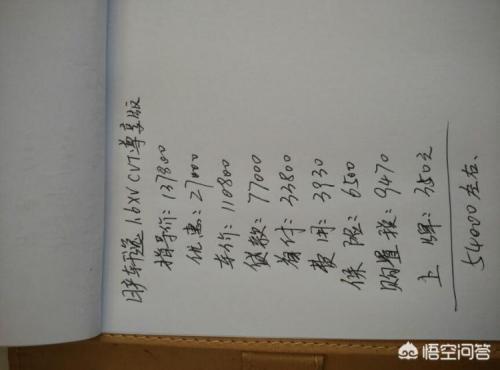 日产轩逸 1.6XV CVT尊享版
指导价：137800
优惠：27000
车价：110800
贷款：77000
首付：33800
费用：3930
保险：6500
购置税：9470
上牌：350元
54000左右.
悟空问答